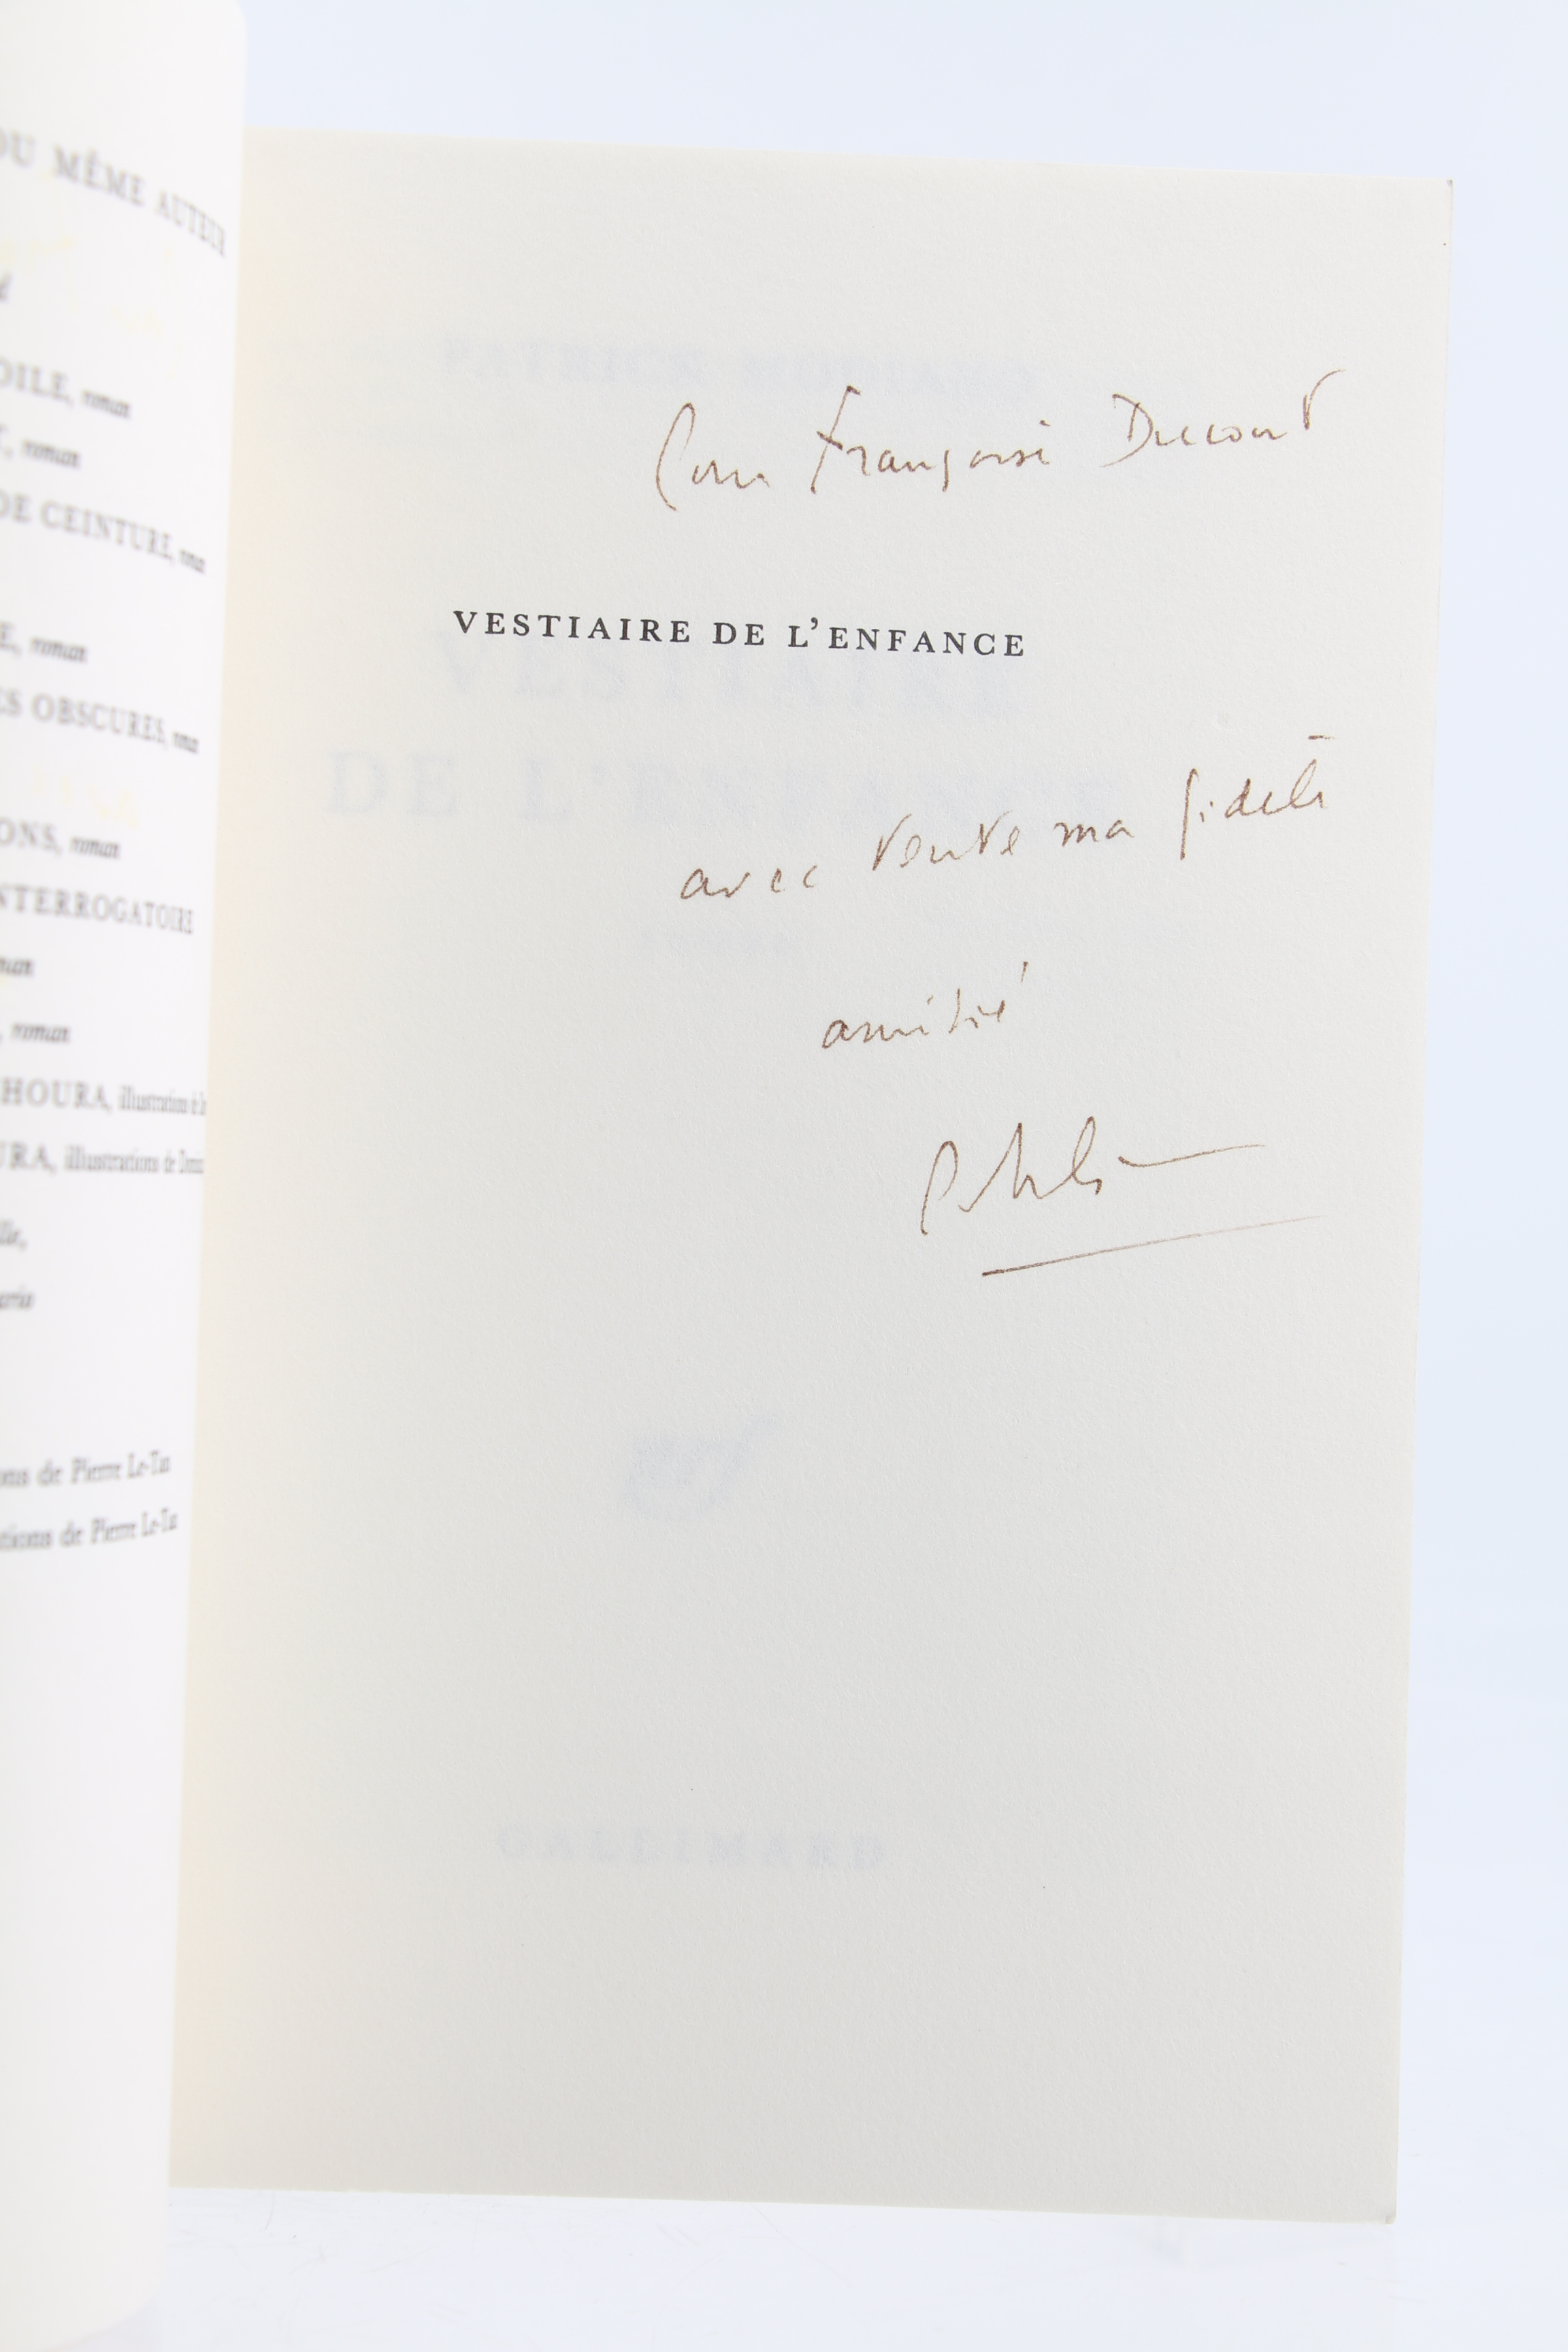 DU MÊME AUTEUR
OILE, roman
T, roman
DE CEINTURE, roman
E, roman
ES OBSCURES, roman
ONS, roman
NTERROGATOIRE
man
, roman
HOURA, illustrations de
URA, illustrations de
lle,
aria
ons de Pierre Le-Tan
ations de Pierre Le-Tan
PATRICK MODIANO
Pour Françoise Ducout
VESTIAIRE DE L'ENFANCE
VESTIAIRE
DE L'ENFANCE
avec toute ma fidèle
roman
amitié
nrf
GALLIMARD